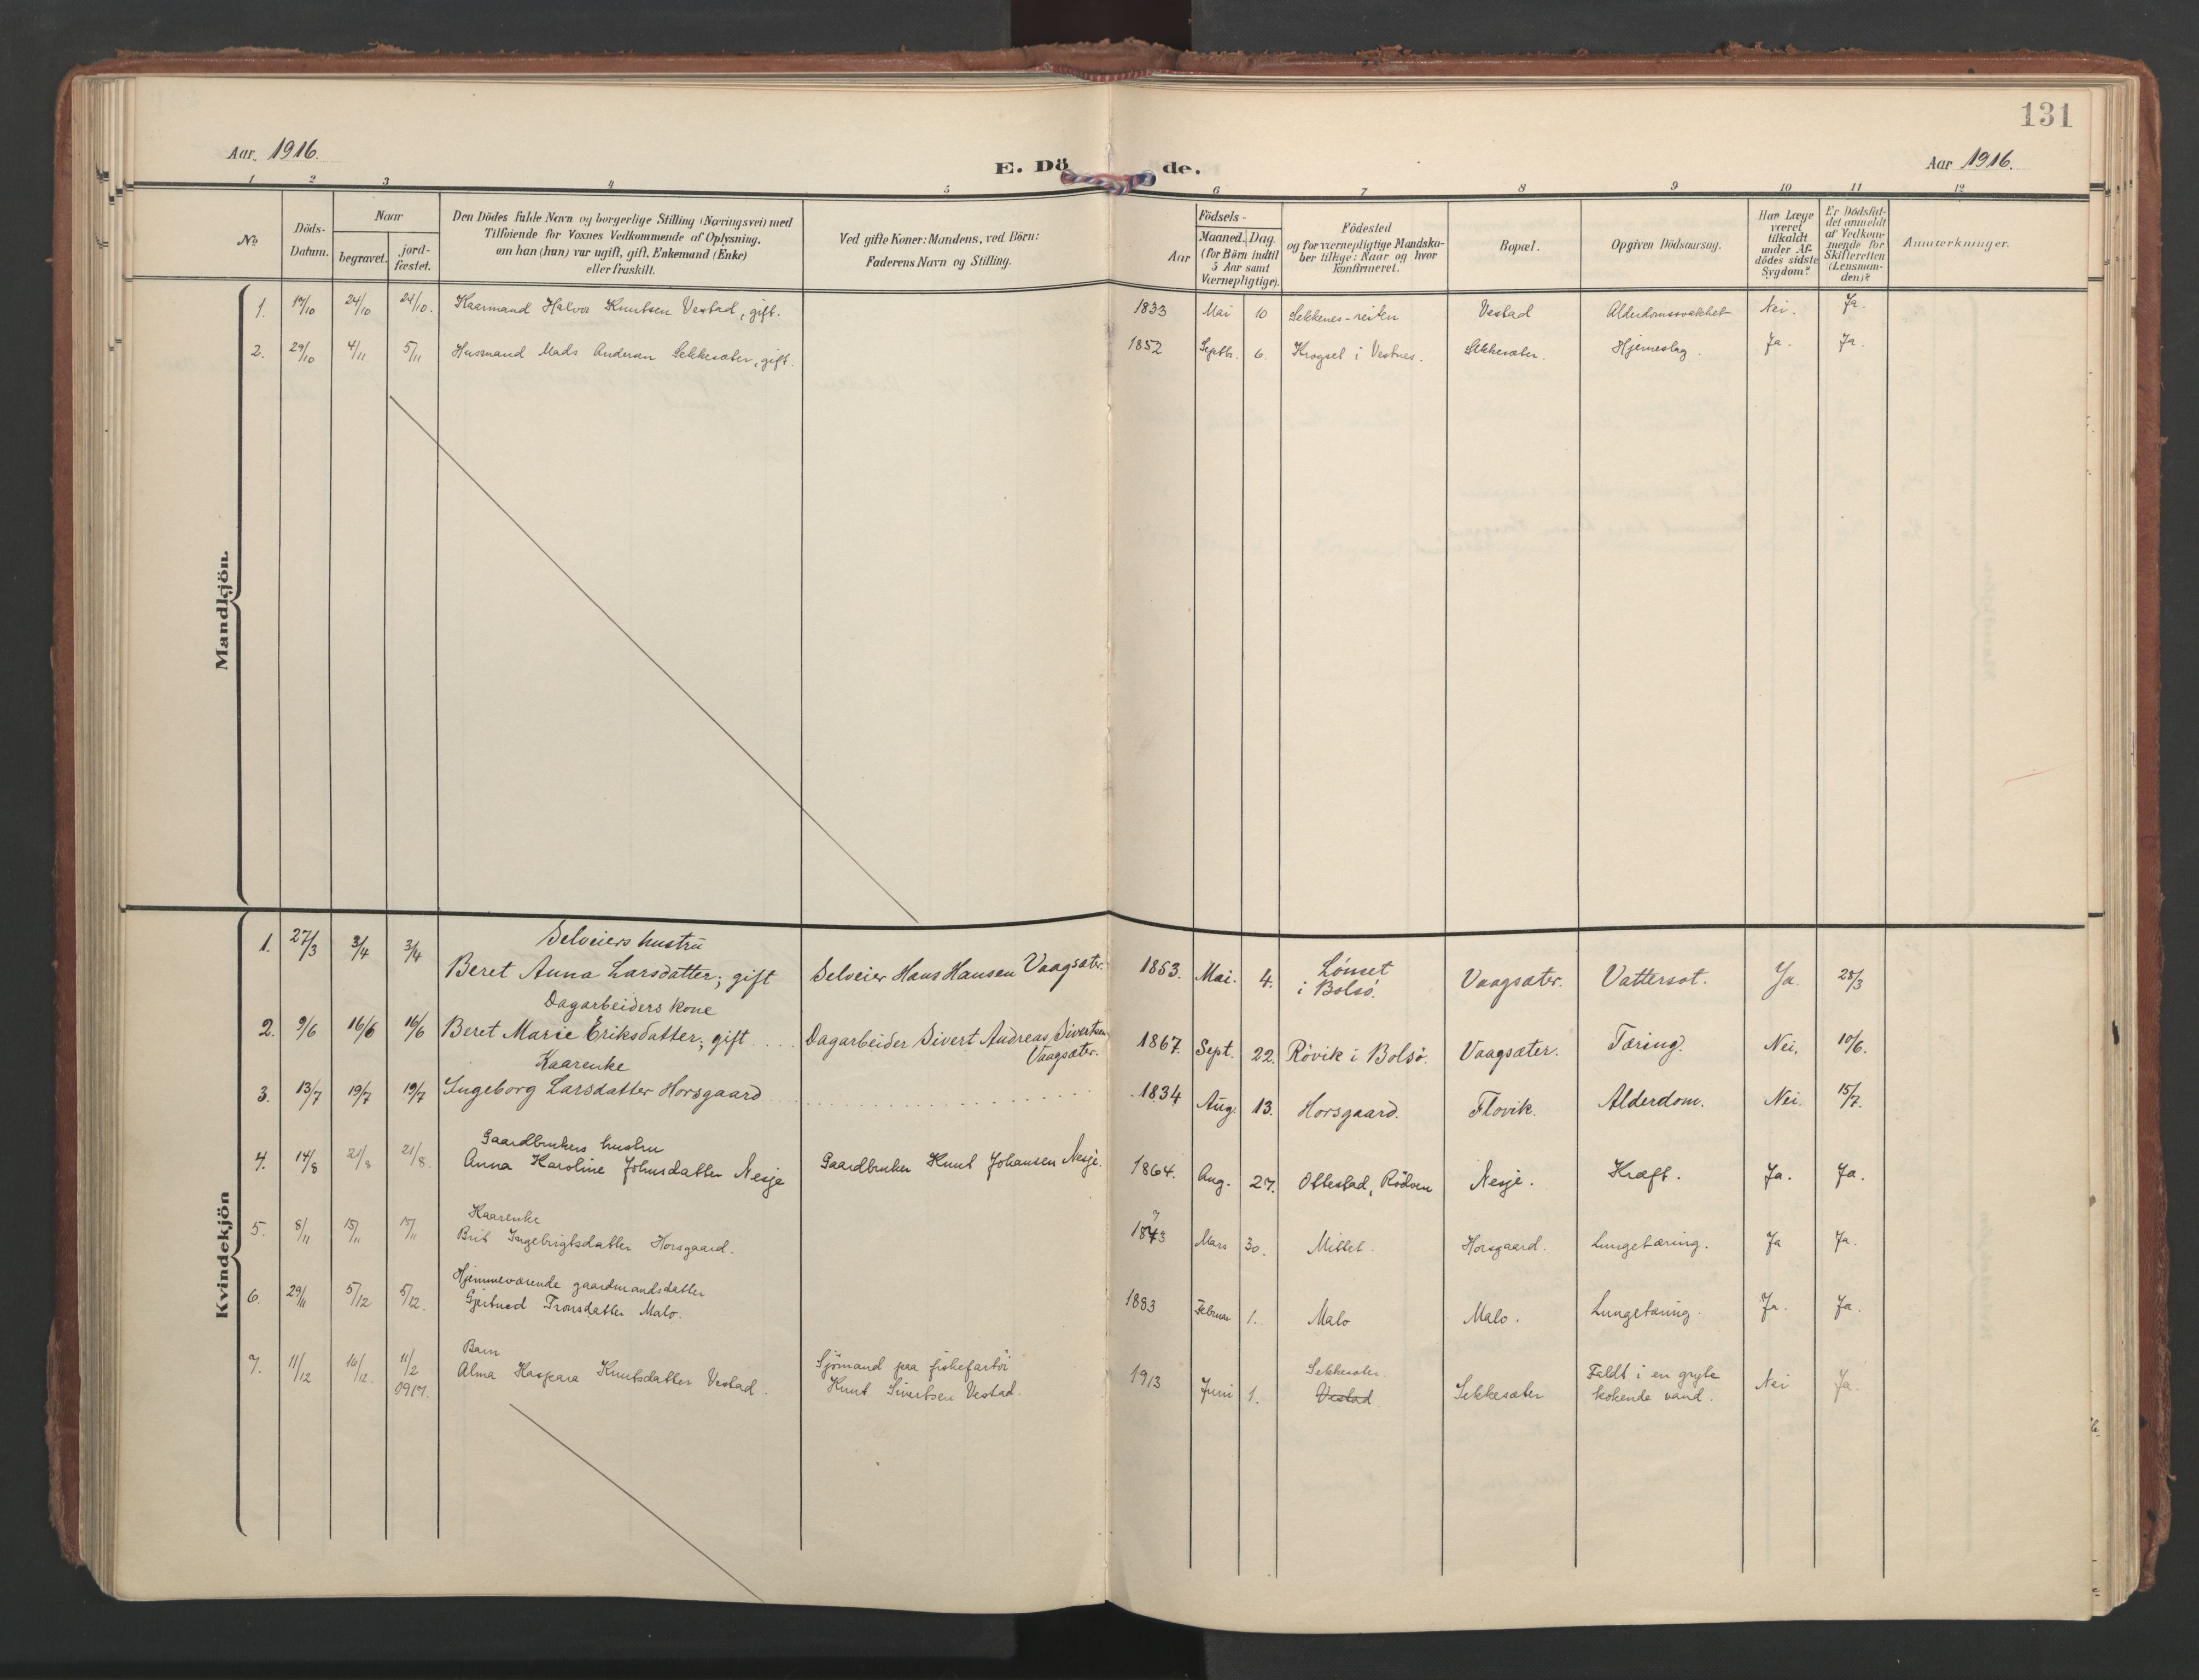 131
Aar. 1916.
E. Dö de.
Aar 1916.
1 2 3 4 5 6 7 8 9 10 11 12
No
Döds-
Datum.
Naar
begravet.
jord-
fæstet.
Den Dödes fulde Navn og borgerlige Stilling (Næringsvei) med
Tilföiende for Voxnes Vedkommende af Oplysning,
om han (hun) var ugift, gift, Enkemand (Enke)
eller fraskilt.
Ved gifte Koner: Mandens, ved Börn:
Faderens Navn og Stilling.
Aar
Födsels-
Maaned. Dag
(for Börn indtil
5 Aar samt
Værnepligtige).
Födested
og for værnepligtige Mandska-
ber tillige: Naar og hvor
konfirmeret.
Bopæl.
Opgiven Dödsaarsag.
Har Læge
været
tilkaldt
under Af-
dödes sidste
Sygdom?
Er Dödsfal-
det anmeldt
af Vedkom-
mende for
Skifteretten
(Lensman-
den)?
Anmærkninger.
Mandkjön.
1. 17/10 24/10 24/10. Kaarmand Halvor Knutsen Vestad, gift. 1833 Mai 10 Sekkenes-reiten Vestad Alderdomssvakhet Nei. Ja.
2. 29/10 4/11 5/11 Husmand Mads Andersen Sekkesæter, gift. 1852 Septb. 6. Krogset i Vestnes. Sekkesæter. Hjerneslag. Ja. Ja.
Kvindekjön
Selveiers hustru
1. 27/3 3/4 3/4 Beret Anna Larsdatter; gift Selveier Hans Hansen Vaagsæter. 1853. Mai. 4. Lönset
i Bolsö. Vaagsæter. Vattersot. Ja. 28/3
Dagarbeiders kone
2. 9/6 16/6 16/6 Beret Marie Eriksdatter; gift .... Dagarbeider Sivert Andreas Sivertsen
Vaagsæter. 1867. Sept. 22. Rövik i Bolsö. Vaagsæter. Tæring. Nei, 10/6.
Kaarenke
3. 13/7 19/7 19/7 Ingeborg Larsdatter Horsgaard 1834 Aug. 13. Horsgaard. Flovik. Alderdom. Nei. 15/7.
Gaardbrukers hustru
4. 14/8 21/8 21/8. Anna Karoline Johnsdatter Nesje Gaardbruker Knut Johansen Nesje. 1864. Aug. 27. Ottestad, Rödven Nesje. Kræft. Ja. Ja.
Kaarenke
5. 8/11 15/11 15/11 Brit Ingebrigtsdatter Horsgaard. 1843 Mars 30. Mittet. Horsgaard. Lungetæring. Ja Ja.
Hjemmeværende gaardmandsdatter
6. 29/11 5/12 5/12. Gjertrud Tronsdatter Malo. 1883 Februar 1. Malo Malo. Lungetæring. Ja. Ja.
Barn
7. 11/12 16/12. 11/2
1917. Alma Kaspara Knutsdatter Vestad. Sjömand paa fiskefartöi
Knut Sivertsen Vestad. 1913 Juni 1. Sekkesæter.
Vestad Sekkesæter Faldt i en gryte
kokende vand. Nei Ja.